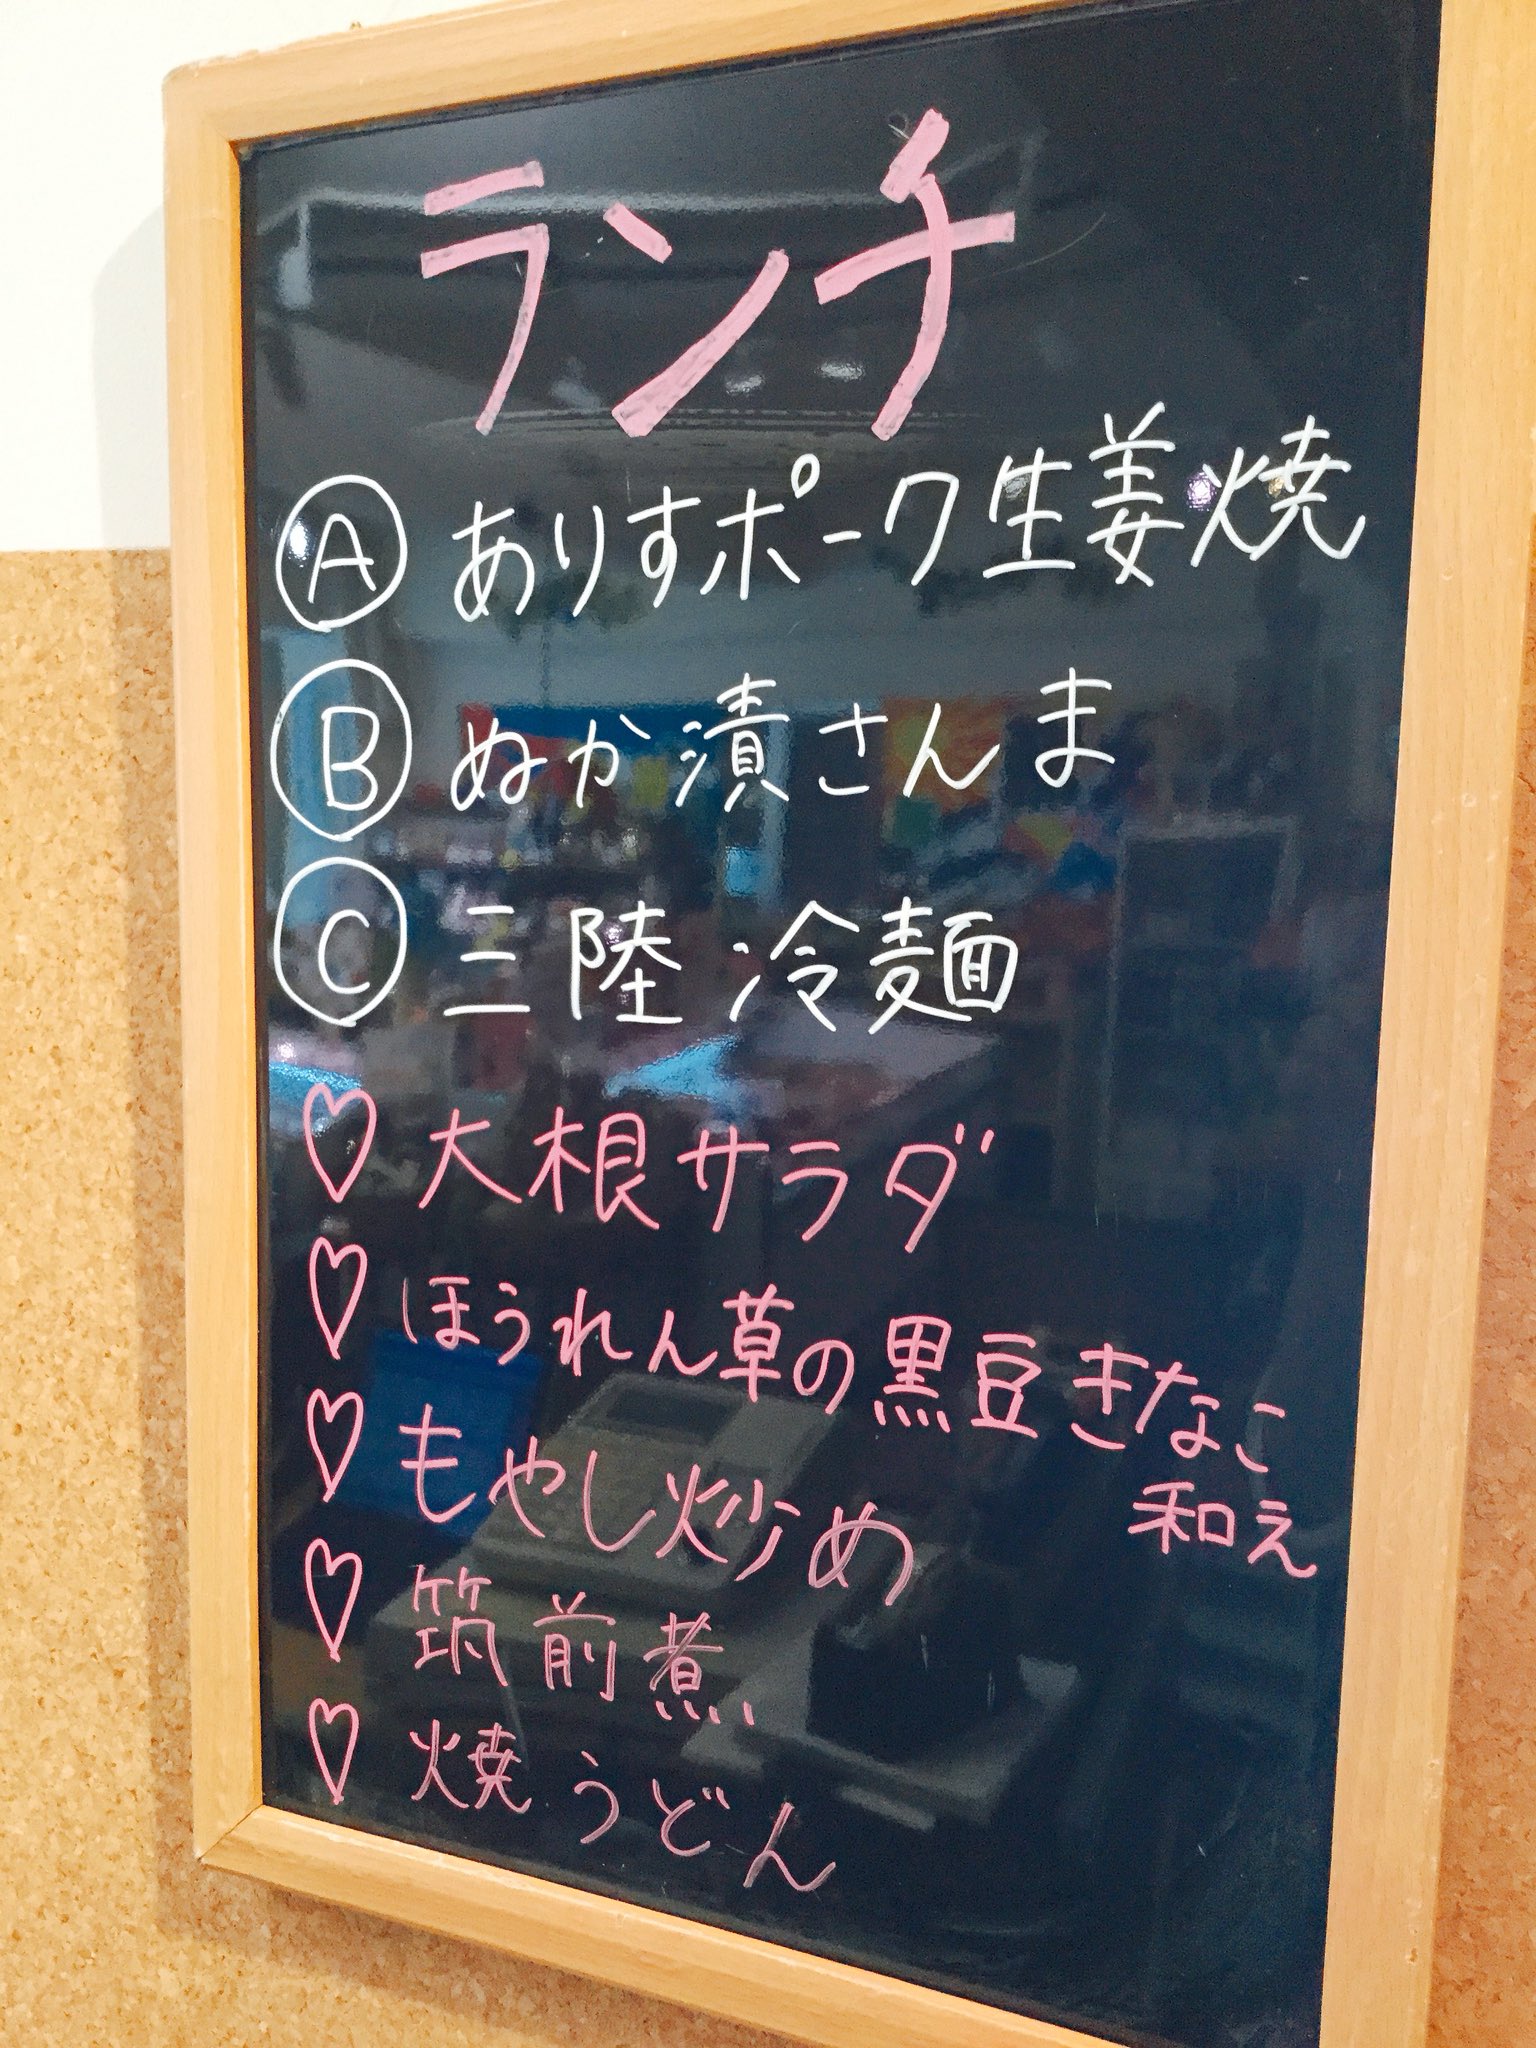 ランチ
Ⓐ ありすポーク生姜焼
Ⓑ ぬか漬さんま
Ⓒ 三陸冷麺
♡ 大根サラダ
♡ ほうれん草の黒豆きなこ
和え
♡ もやし炒め
♡ 筑前煮
♡ 焼うどん